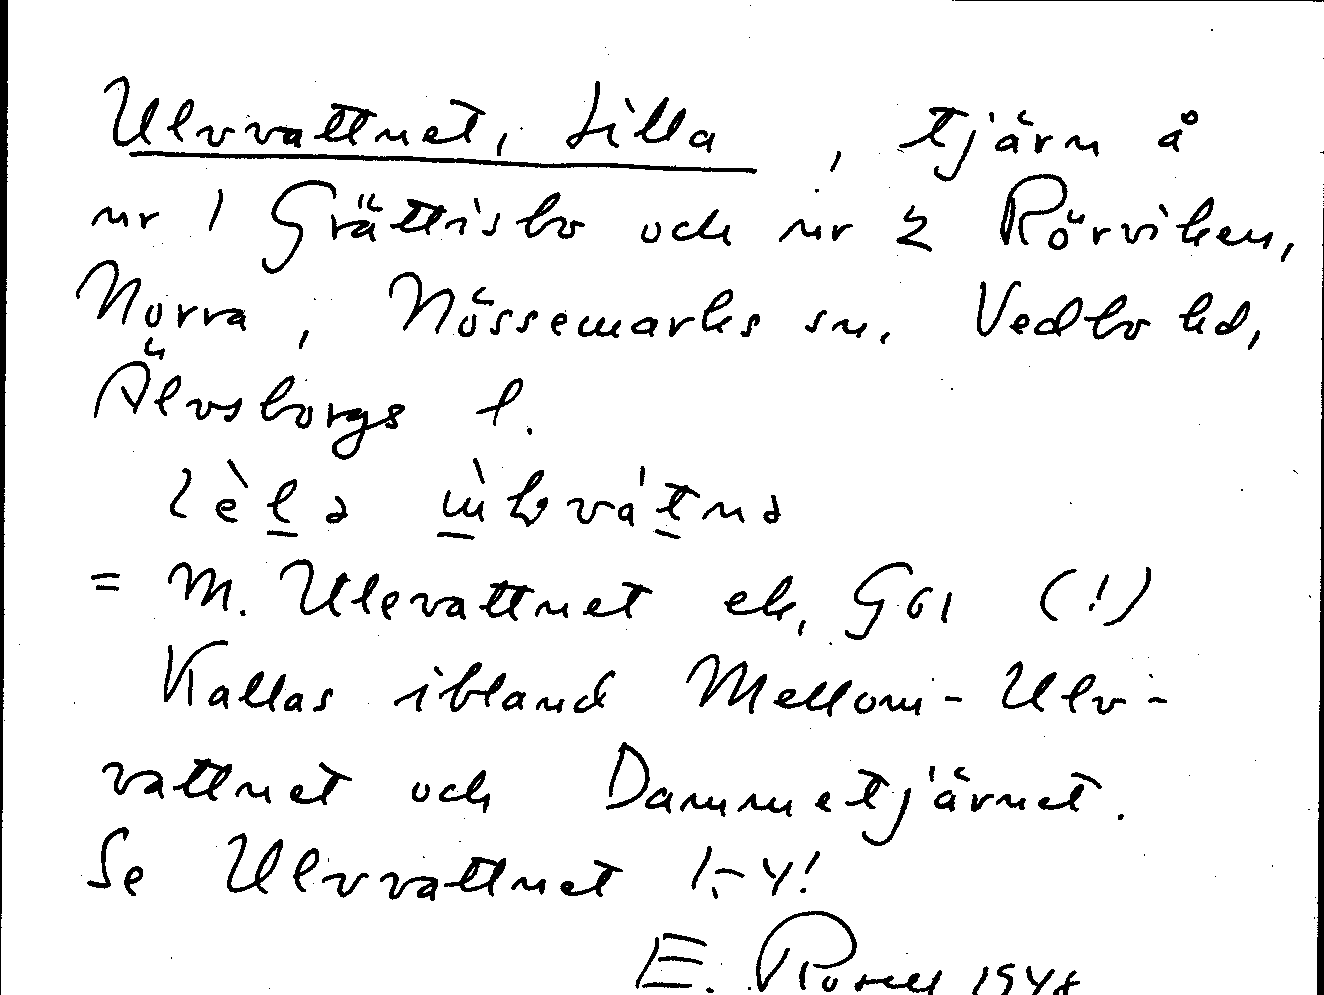 Ulvvattnet, Lilla, tjärn å
nr 1 Grättisbo och nr 2 Rörviken,
Norra, Nössemarks sn. Vedbo hd,
Älvsborgs l.
= M. Ulevattnet ek, G61 (!)
Kallas ibland Mellom-Ulv-
vattnet och Dammetjärnet.
Se Ulvvattnet 1-4!
E. 1948